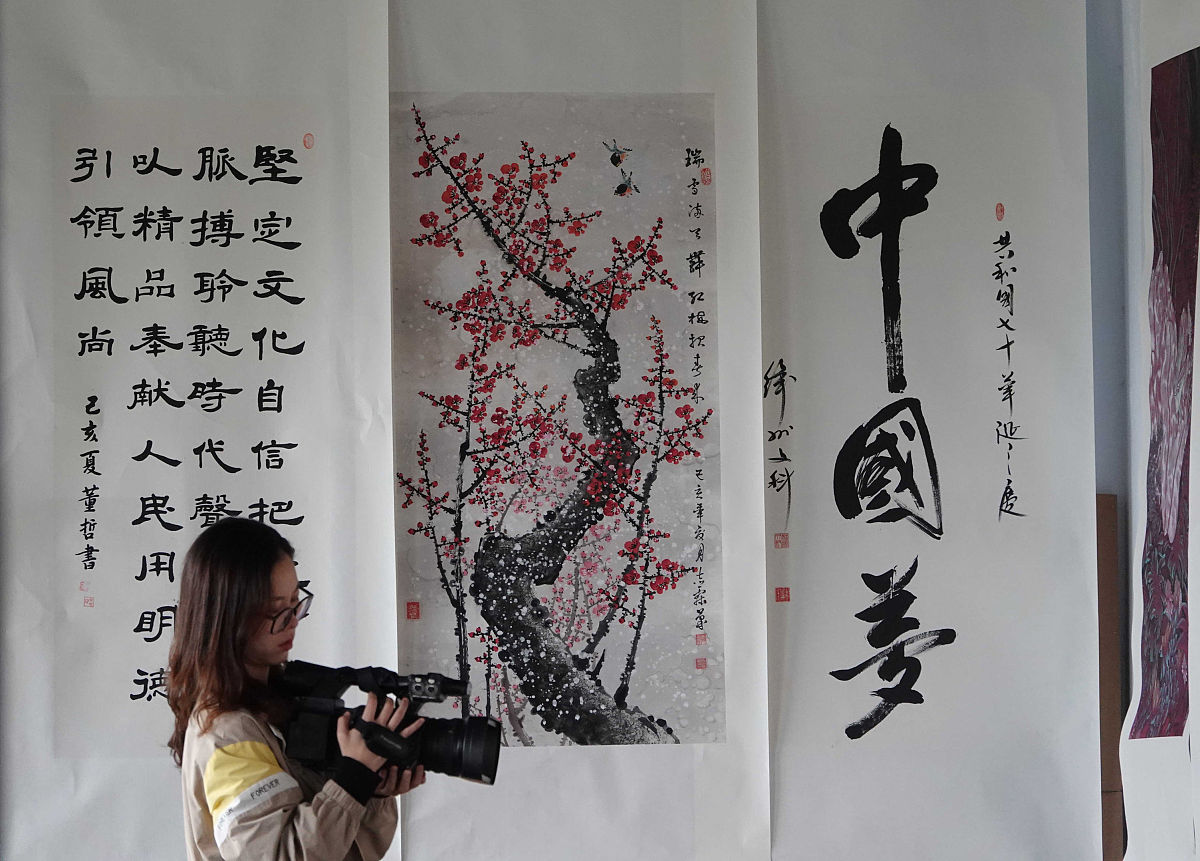 堅定文化自信把
脈搏聆聽時代聲
以精品奉献人民用明德
引領風尚
己亥夏董哲書
瑞雪满天舞红梅报春来
己亥年寅月
共和國七十華誕之慶
中國夢
FOREVER